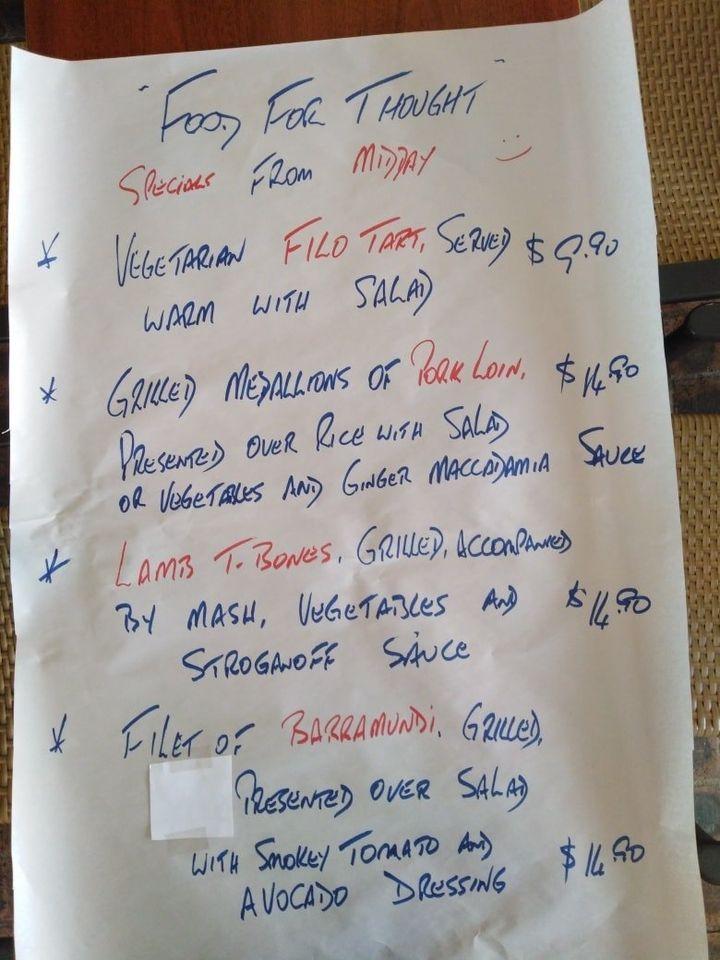 "FOOD FOR THOUGHT"
SPECIALS FROM MIDDAY :)
* VEGETARIAN FILO TART, SERVED $9.90
WARM WITH SALAD
* GRILLED MEDALLIONS OF PORK LOIN, $14.90
PRESENTED OVER RICE WITH SALAD
OR VEGETABLES AND GINGER MACCADAMIA SAUCE
* LAMB T-BONES, GRILLED, ACCOMPANIED
BY MASH, VEGETABLES AND $14.90
STROGANOFF SAUCE
* FILET OF BARRAMUNDI, GRILLED,
PRESENTED OVER SALAD
WITH SMOKEY TOMATO AND $14.90
AVOCADO DRESSING